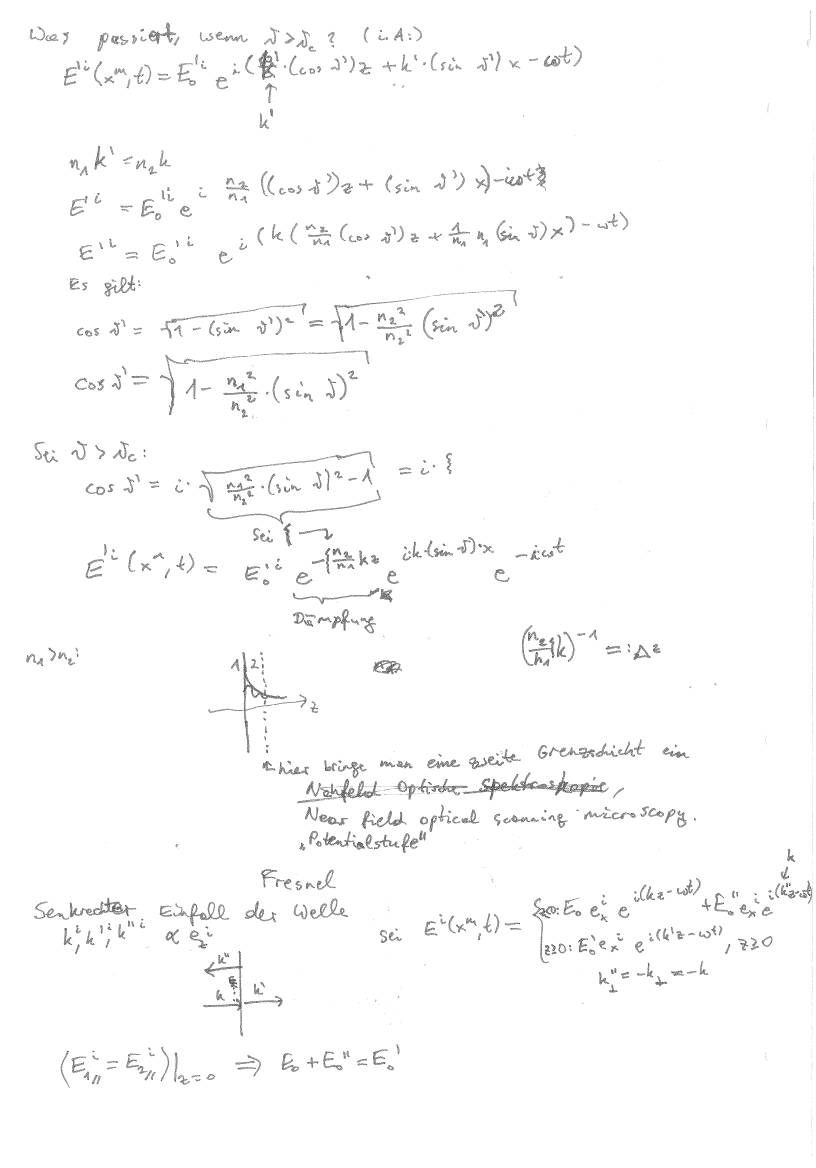 Was passiert, wenn ϑ>ϑ_c ? (i.A.:)
E'^i(x^m,t) = E_0'^i e^{i(k'·(cos ϑ')z + k'·(sin ϑ')x − ωt)}
↑
k'
n_1 k' = n_2 k
E'^i = E_0'^i e^{i n_2/n_1 ((cos ϑ')z + (sin ϑ')x) − iωt}
E'^i = E_0'^i e^{i(k(n_2/n_1 (cos ϑ')z + 1/n_1 n_1 (sin ϑ)x) − ωt)}
Es gilt:
cos ϑ' = √(1 − (sin ϑ')²) = √(1 − n_2²/n_2² (sin ϑ')²)
cos ϑ' = √(1 − n_1²/n_2² · (sin ϑ)²)
Sei ϑ > ϑ_c:
cos ϑ' = i · √(n_1²/n_2² · (sin ϑ)² − 1) = i · ξ
sei ξ
E'^i(x^m,t) = E_0'^i e^{−ξ n_2/n_1 kz} e^{ik·(sin ϑ)·x} e^{−iωt}
Dämpfung
n_1>n_2: (n_2/n_1 ξ k)^{−1} =: Δz
1 2
z
hier bringe man eine zweite Grenzschicht ein
Nahfeld Optische Spektroskopie,
Near field optical scanning microscopy.
„Potentialstufe"
Fresnel
k
↓
Senkrechter Einfall der Welle
k^i, k'^i, k''^i ∝ e_z^i
sei E^i(x^m,t) = { z≤0: E_0 e_x^i e^{i(kz−ωt)} + E_0'' e_x^i e^{i(k''z−ωt)}
z≥0: E_0' e_x^i e^{i(k'z−ωt)}, z≥0
k''_⊥ = −k_⊥ = −k
k''
k k'
(E_{1//}^i = E_{2//}^i)|_{z=0} ⇒ E_0 + E_0'' = E_0'